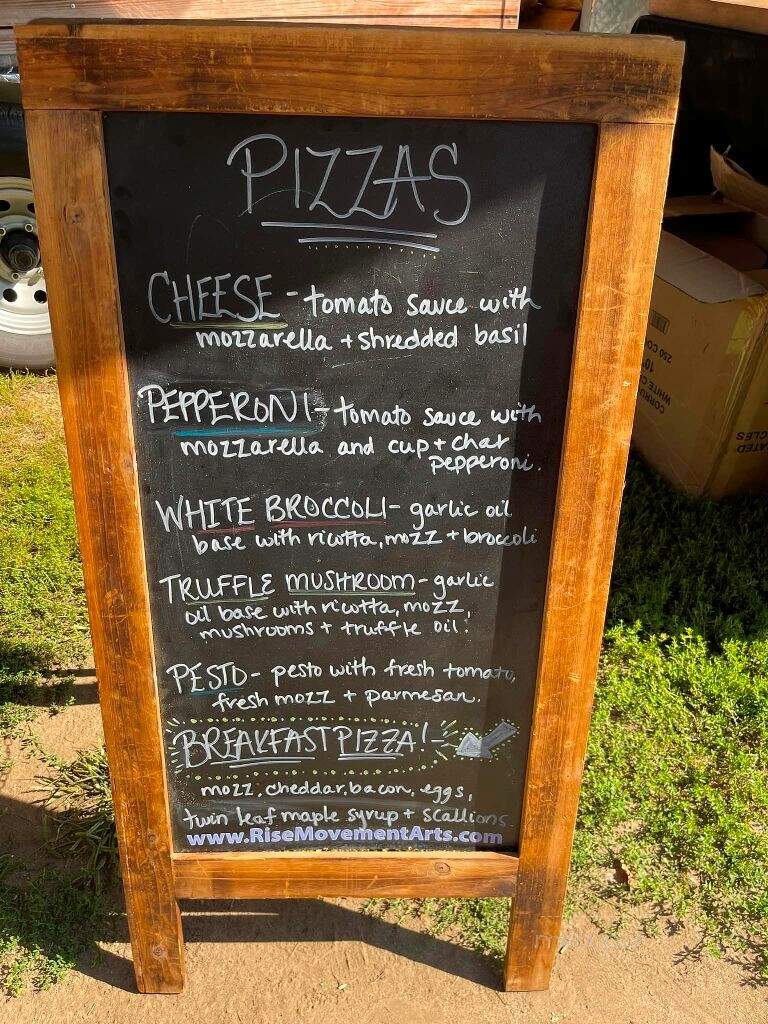 PIZZAS
CHEESE - tomato sauce with
mozzarella + shredded basil
PEPPERONI - tomato sauce with
mozzarella and cup + char
pepperoni.
WHITE BROCCOLI - garlic oil
base with ricotta, mozz + broccoli
TRUFFLE MUSHROOM - garlic
oil base with ricotta, mozz,
mushrooms + truffle oil.
PESTO - pesto with fresh tomato,
fresh mozz + parmesan.
BREAKFAST PIZZA!
mozz, cheddar, bacon, eggs,
twin leaf maple syrup + scallions.
www.RiseMovementArts.com